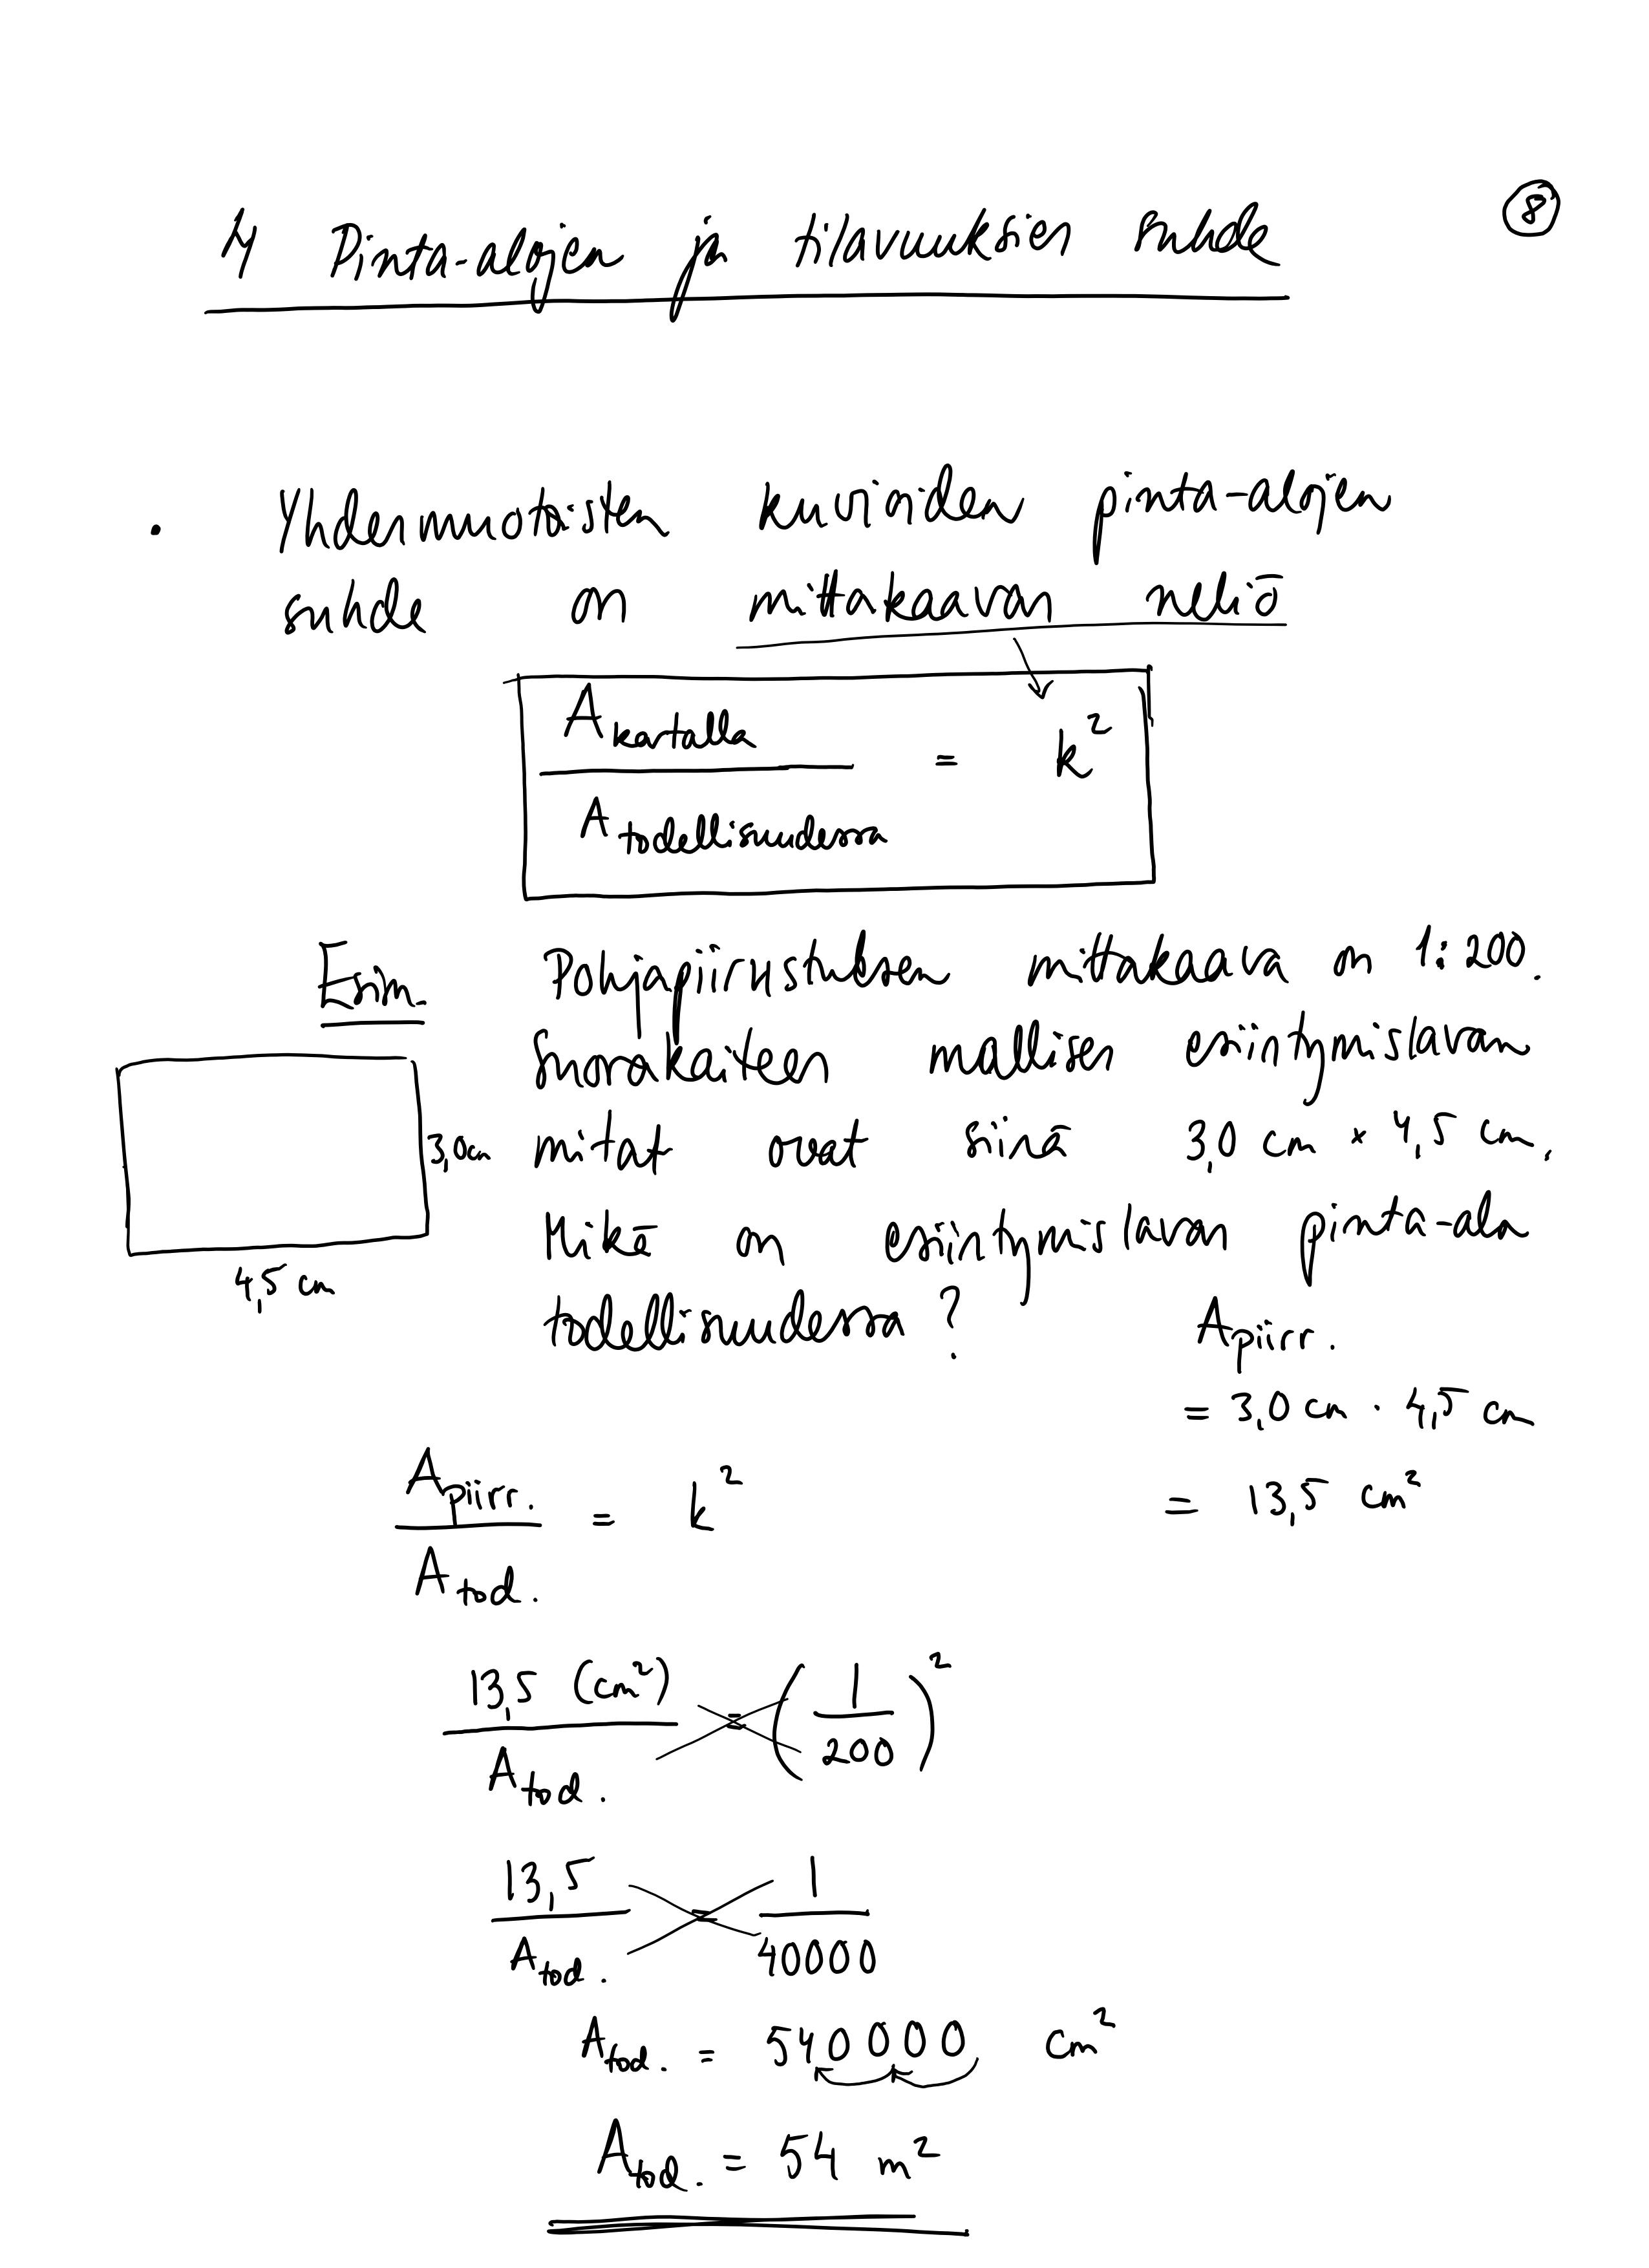 8
4 Pinta-alojen ja tilavuuksien suhde
• Yhdenmuotoisten kuvioiden pinta-alojen
suhde on mittakaavan neliö
A kartalla / A todellisuudessa = k²
Esim. Pohjapiirustuksen mittakaava on 1:200.
Suorakaiteen mallisen esiintymislavan
mitat ovat siinä 3,0 cm × 4,5 cm.
3,0 cm
4,5 cm
Mikä on esiintymislavan pinta-ala
todellisuudessa?
A piirr.
= 3,0 cm · 4,5 cm
= 13,5 cm²
A piirr. / A tod. = k²
13,5 (cm²) / A tod. = (1/200)²
13,5 / A tod. = 1 / 40000
A tod. = 540000 cm²
A tod. = 54 m²